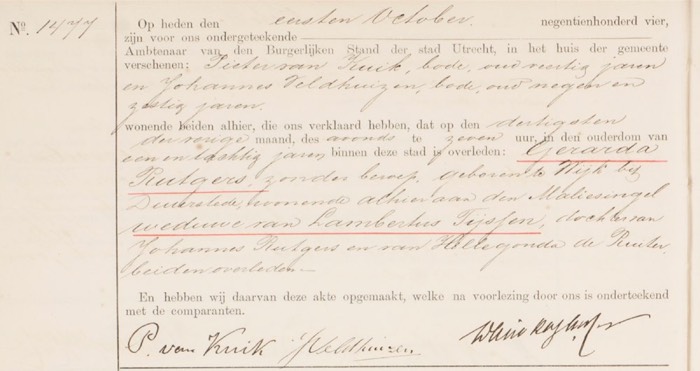 Nº. 1477
Op heden den eersten October. negentienhonderd vier,
zijn voor ons ondergeteekende
Ambtenaar van den Burgerlijken Stand der stad Utrecht, in het huis der gemeente
verschenen: Pieter van Kuik, bode, oud veertig jaren
en Johannes Veldhuizen, bode, oud negen en
zestig jaren.
wonende beiden alhier, die ons verklaard hebben, dat op den dertigsten
der vorige maand, des avonds te zeven uur, in den ouderdom van
een en tachtig jaren binnen deze stad is overleden: Gerarda
Rutgers, zonder beroep, geboren te Wijk bij
Duurstede, wonende alhier aan den Maliesingel
weduwe van Lambertus Tijssen, dochter van
Johannes Rutgers en van Hillegonda de Ruiter,
beiden overleden.—
En hebben wij daarvan deze akte opgemaakt, welke na voorlezing door ons is onderteekend
met de comparanten.
P. van Kuik J Veldhuizen